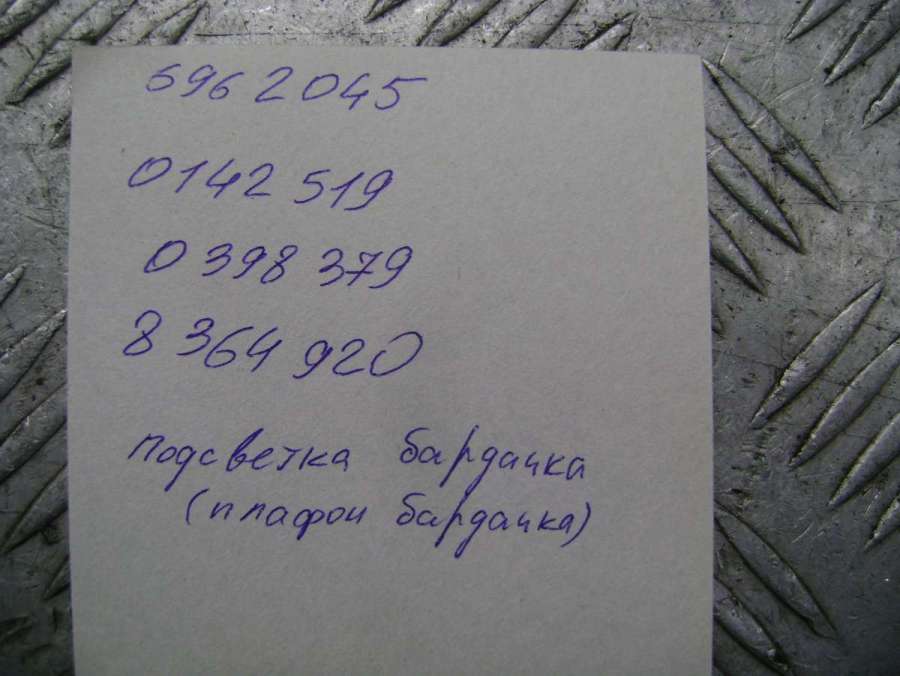 6962045
0142 519
0 398 379
8 364 920
Подсветка бардачка
(плафон бардачка)